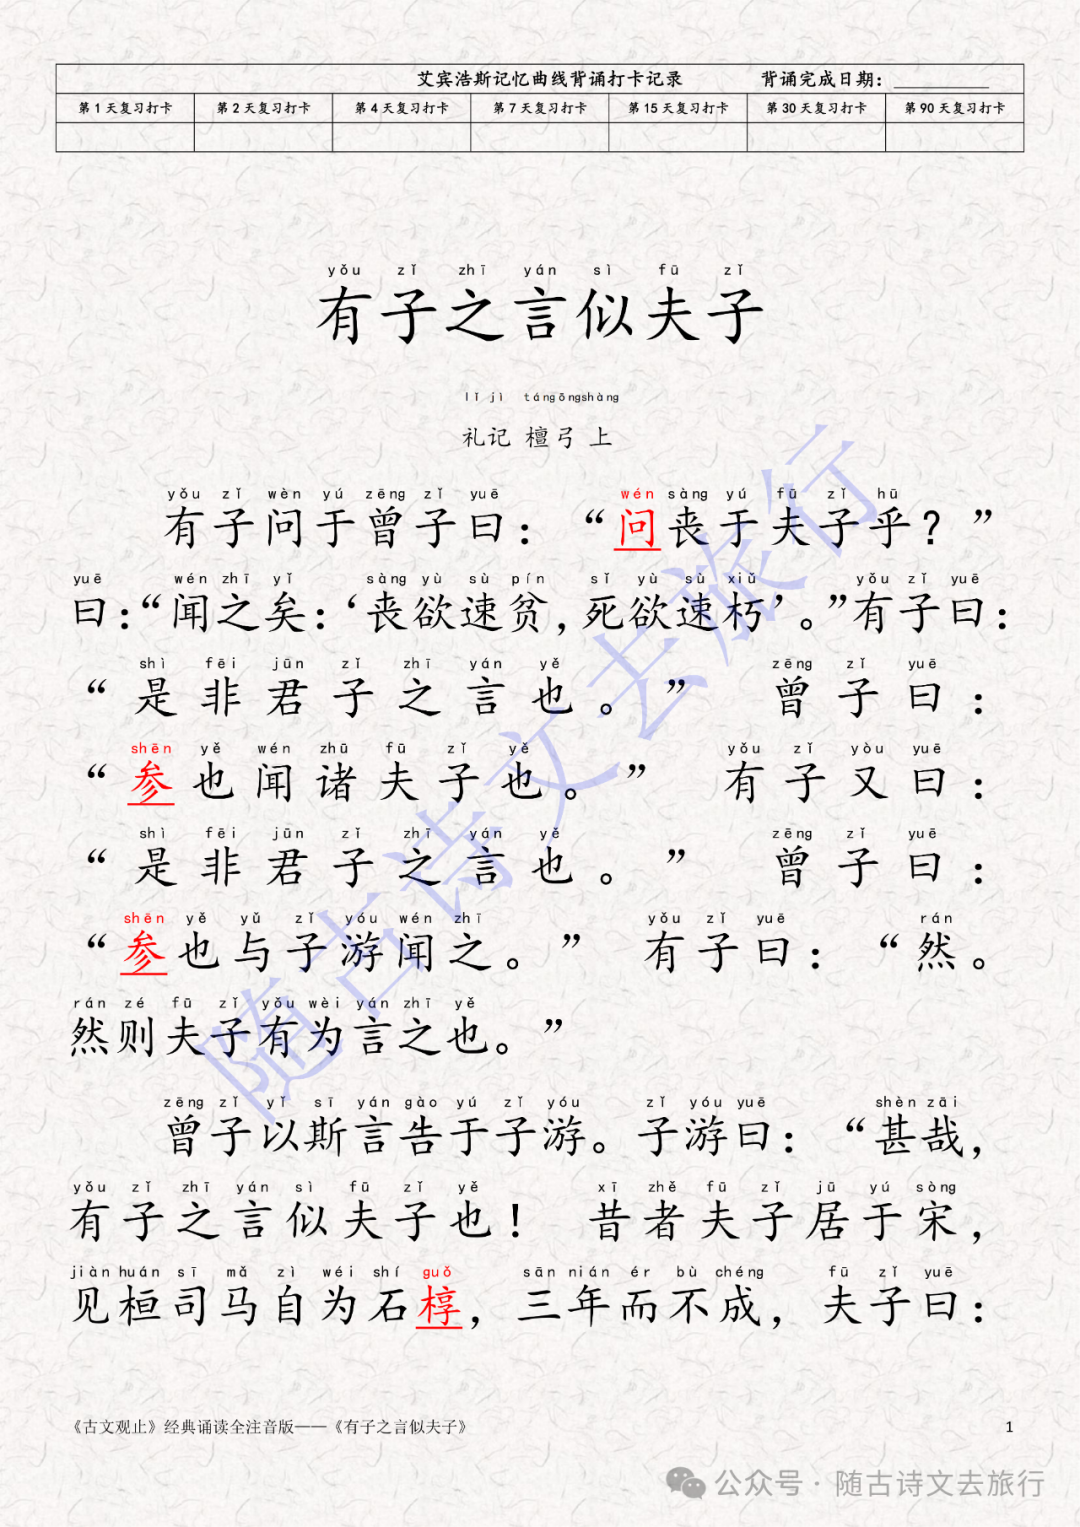 艾宾浩斯记忆曲线背诵打卡记录 背诵完成日期：__________
第1天复习打卡 第2天复习打卡 第4天复习打卡 第7天复习打卡 第15天复习打卡 第30天复习打卡 第90天复习打卡
yǒu zǐ zhī yán sì fū zǐ
有子之言似夫子
lǐ jì tángōngshàng
礼记 檀弓 上
yǒu zǐ wèn yú zēng zǐ yuē wén sàng yú fū zǐ hū
有子问于曾子曰：“问丧于夫子乎？”
yuē wén zhī yǐ sàng yù sù pín sǐ yù sù xiǔ yǒu zǐ yuē
曰：“闻之矣：‘丧欲速贫，死欲速朽’。”有子曰：
shì fēi jūn zǐ zhī yán yě zēng zǐ yuē
“是非君子之言也。” 曾子曰：
shēn yě wén zhū fū zǐ yě yǒu zǐ yòu yuē
“参也闻诸夫子也。” 有子又曰：
shì fēi jūn zǐ zhī yán yě zēng zǐ yuē
“是非君子之言也。” 曾子曰：
shēn yě yǔ zǐ yóu wén zhī yǒu zǐ yuē rán
“参也与子游闻之。” 有子曰：“然。
rán zé fū zǐ yǒu wèi yán zhī yě
然则夫子有为言之也。”
zēng zǐ yǐ sī yán gào yú zǐ yóu zǐ yóu yuē shèn zāi
曾子以斯言告于子游。子游曰：“甚哉，
yǒu zǐ zhī yán sì fū zǐ yě xī zhě fū zǐ jū yú sòng
有子之言似夫子也！ 昔者夫子居于宋，
jiàn huán sī mǎ zì wéi shí guǒ sān nián ér bù chéng fū zǐ yuē
见桓司马自为石椁，三年而不成，夫子曰：
随古诗文去旅行
《古文观止》经典诵读全注音版——《有子之言似夫子》 1
公众号·随古诗文去旅行